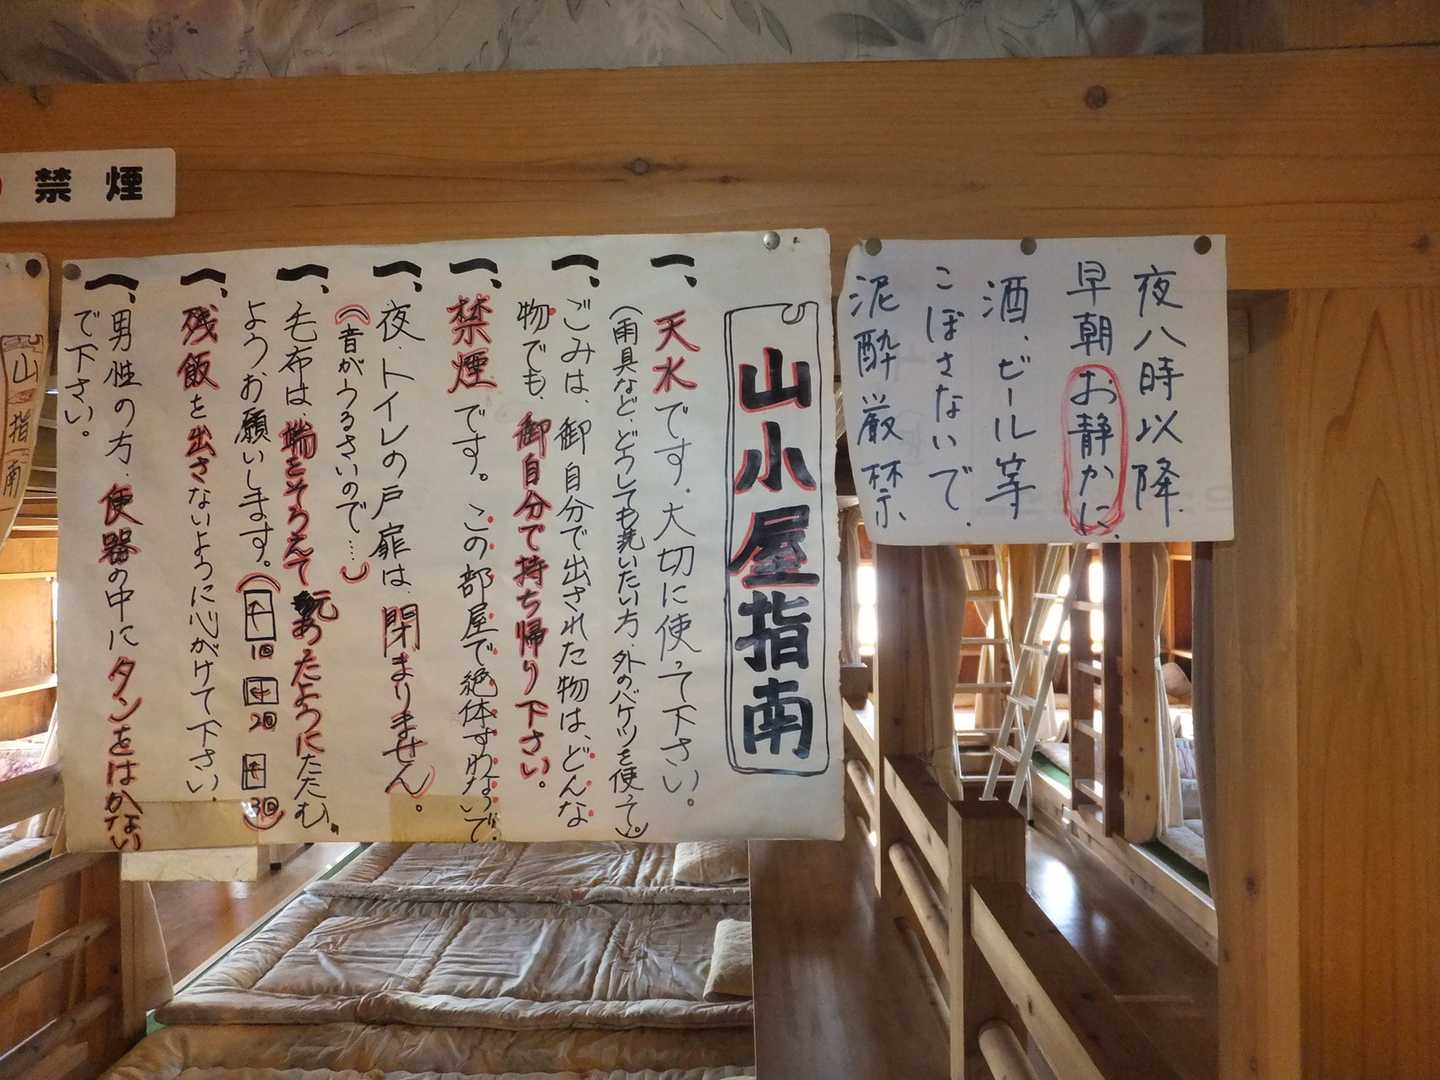 禁煙
夜八時以降
早朝お静かに、
酒、ビール等
こぼさないで、
泥酔厳禁、
山小屋指南
一、天水です、大切に使って下さい。
(雨具など、どうしても洗いたい方、外のバケツを使って。)
一、ごみは、御自分で出された物は、どんな
物でも、御自分で持ち帰り下さい。
一、禁煙です。この部屋で絶体すわないで、
一、夜、トイレの戸扉は、閉まりません。
(音がうるさいので…)
一、毛布は、端をそろえてあったようにたたむ、
よう、お願いします。(
1回
2回
3回)
一、残飯を出さないように心がけて下さい
一、男性の方、便器の中にタンをはかない
で下さい。
山
指
南